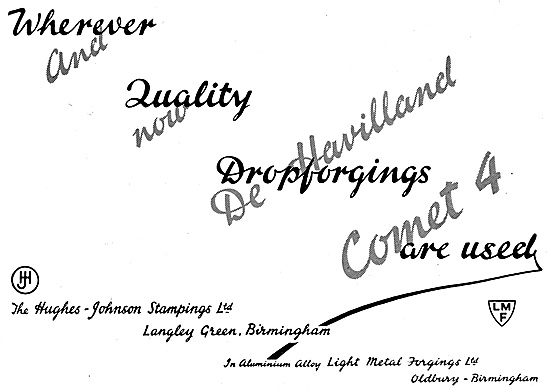 Wherever
And
Quality
now
Dropforgings
De Havilland
are used
Comet 4
JH
The Hughes-Johnson Stampings Ltd
Langley Green, Birmingham
LMF
In Aluminium Alloy Light Metal Forgings Ltd
Oldbury - Birmingham